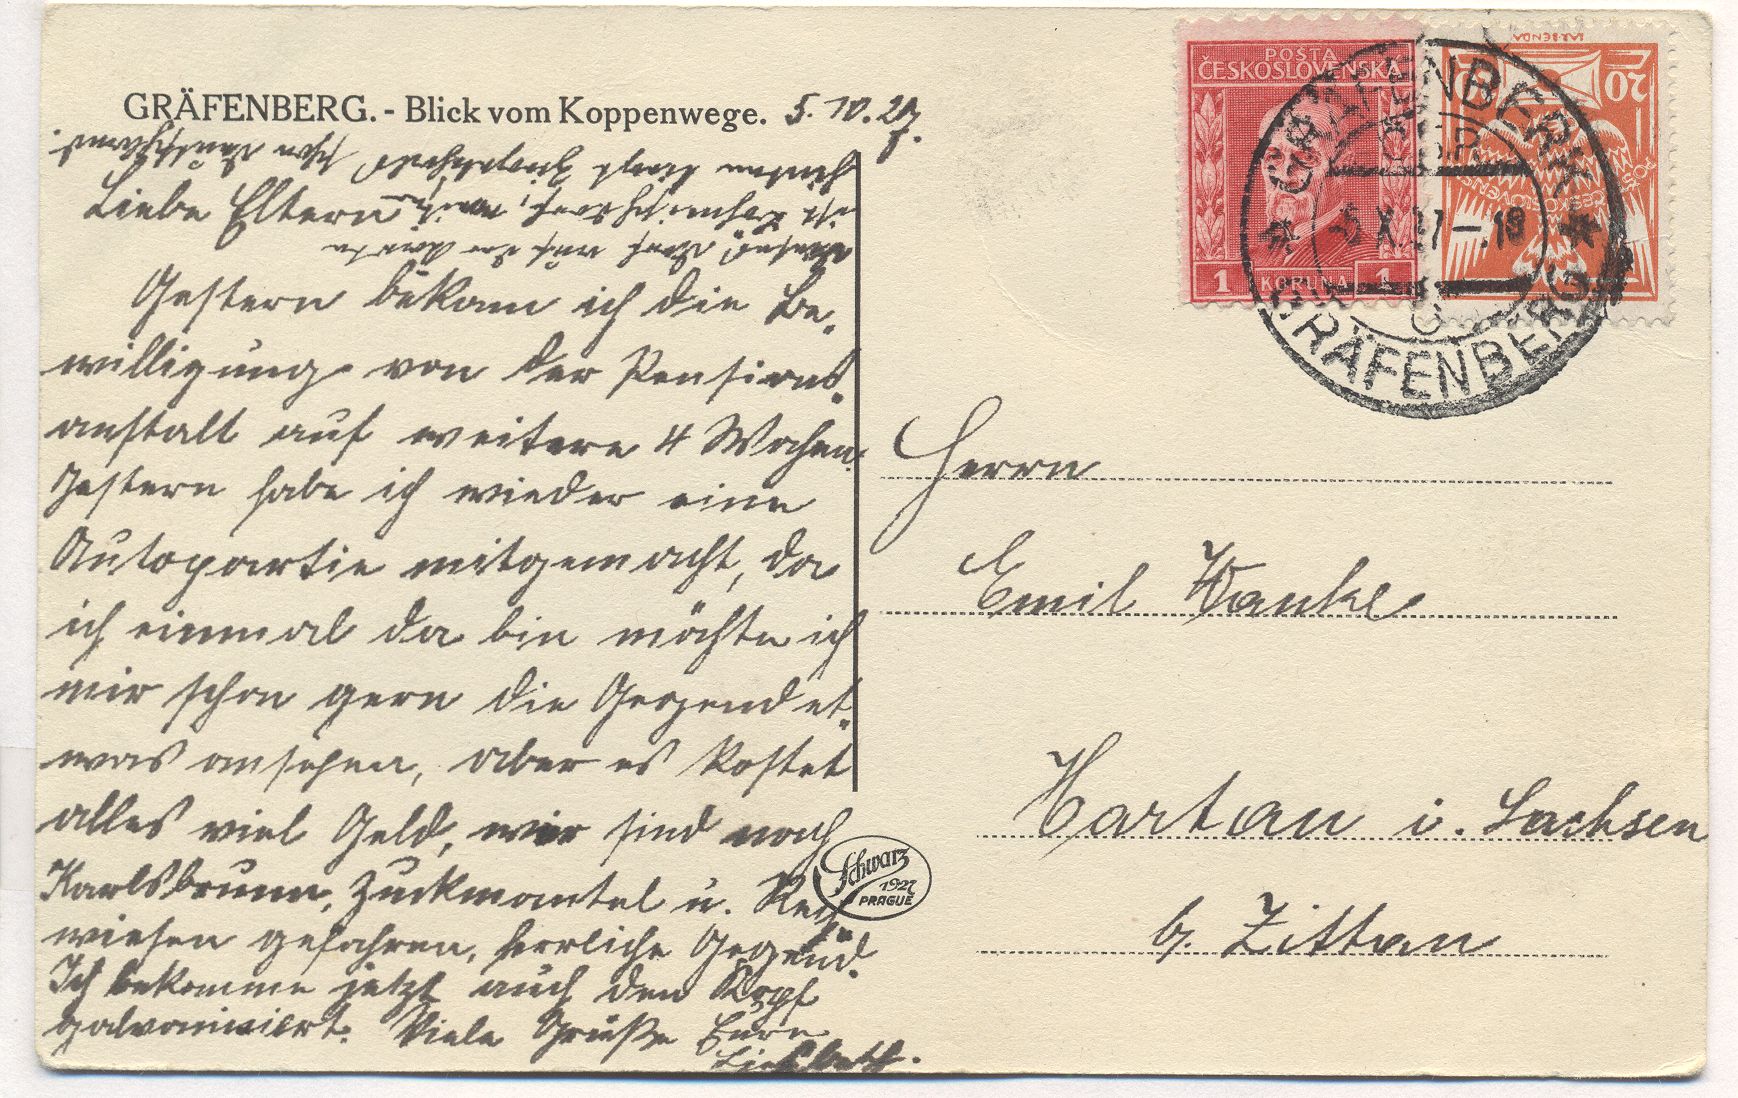 GRÄFENBERG. - Blick vom Koppenwege. 5. 10. 27.
Liebe Eltern
Gestern bekam ich die Be-
willigung von der Pensions-
anstalt auf weitere 4 Wochen.
Gestern habe ich wieder eine
Autopartie mitgemacht, da
ich einmal da bin möchte ich
mir schon gern die Gegend et-
was ansehen, aber es kostet
alles viel Geld, wir sind nach
Karlsbrunn, Zuckmantel u. Reih-
wiesen gefahren, herrliche Gegend.
Ich bekomme jetzt auch den Kopf
galvanisiert. Viele Grüße Eure
Liesbeth.
Dorf auf der Karte
ist
hinten liegt schon
Schwarz
1927
PRAGUE
POŠTA
ČESKOSLOVENSKÁ
1 KORUNA 1
20 20
POŠTA
ČESKOSLOVENSKÁ
GRÄFENBERK
ČSR
5.X.27-18
GRÄFENBERG
Herrn
Emil Wanke
Hartau i. Sachsen
b. Zittau